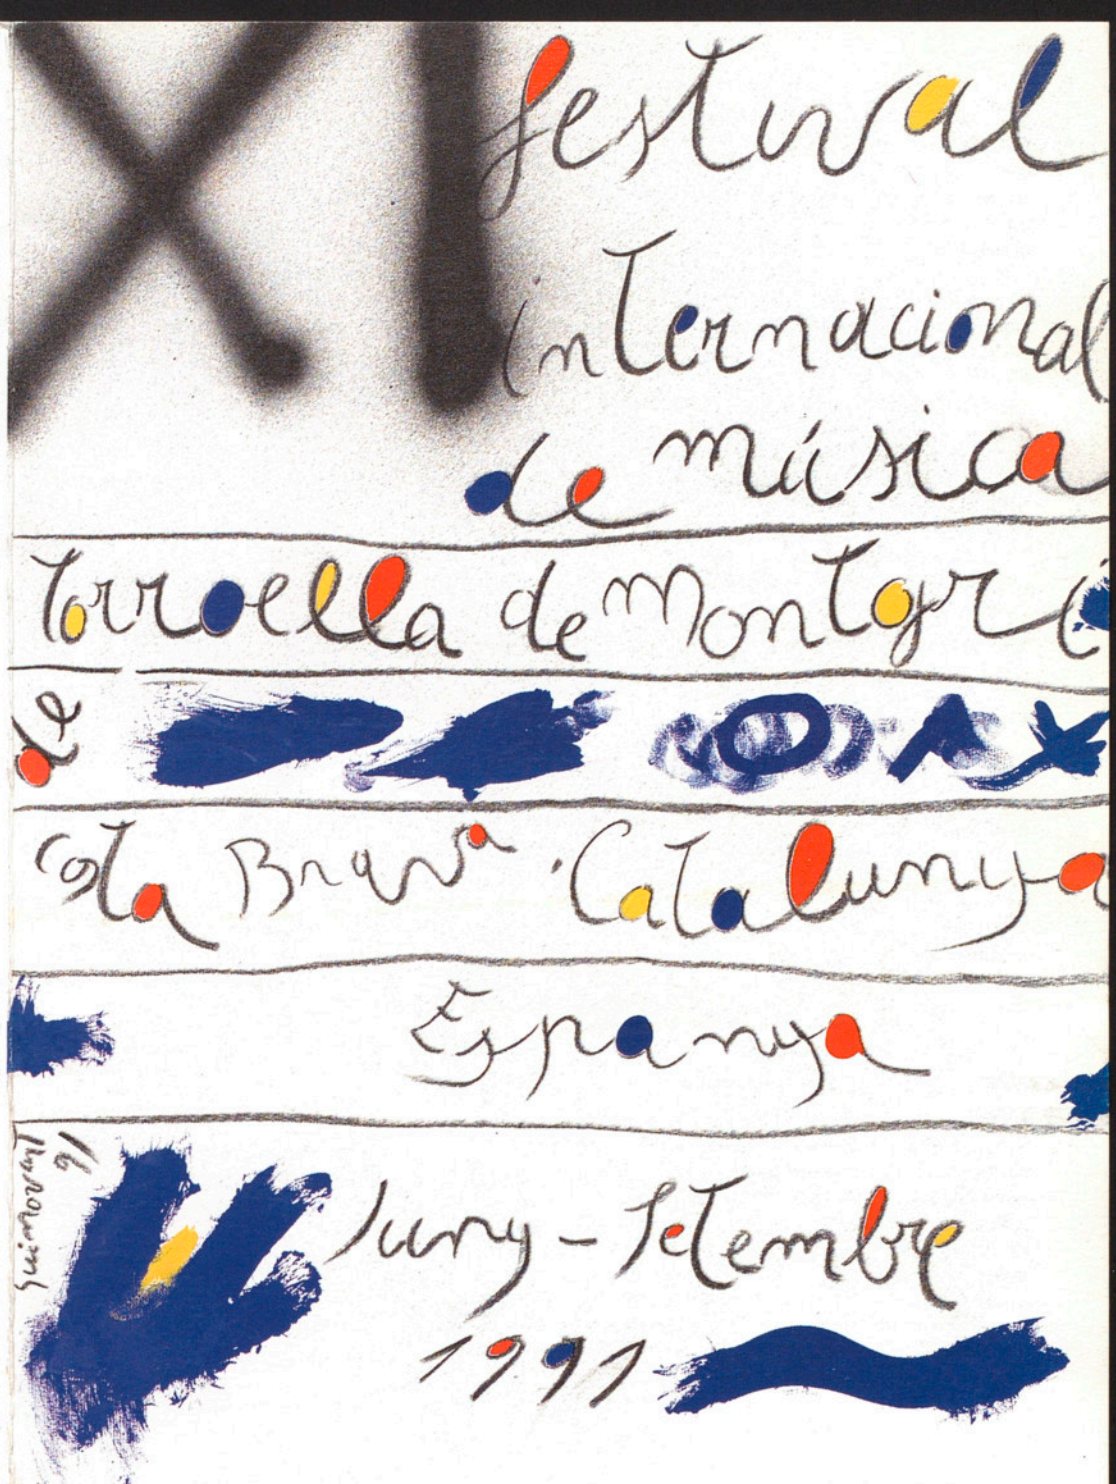 XI festival
internacional
de música
Torroella de Montgrí
de
Costa Brava. Catalunya
Espanya
Juny - Setembre
1991